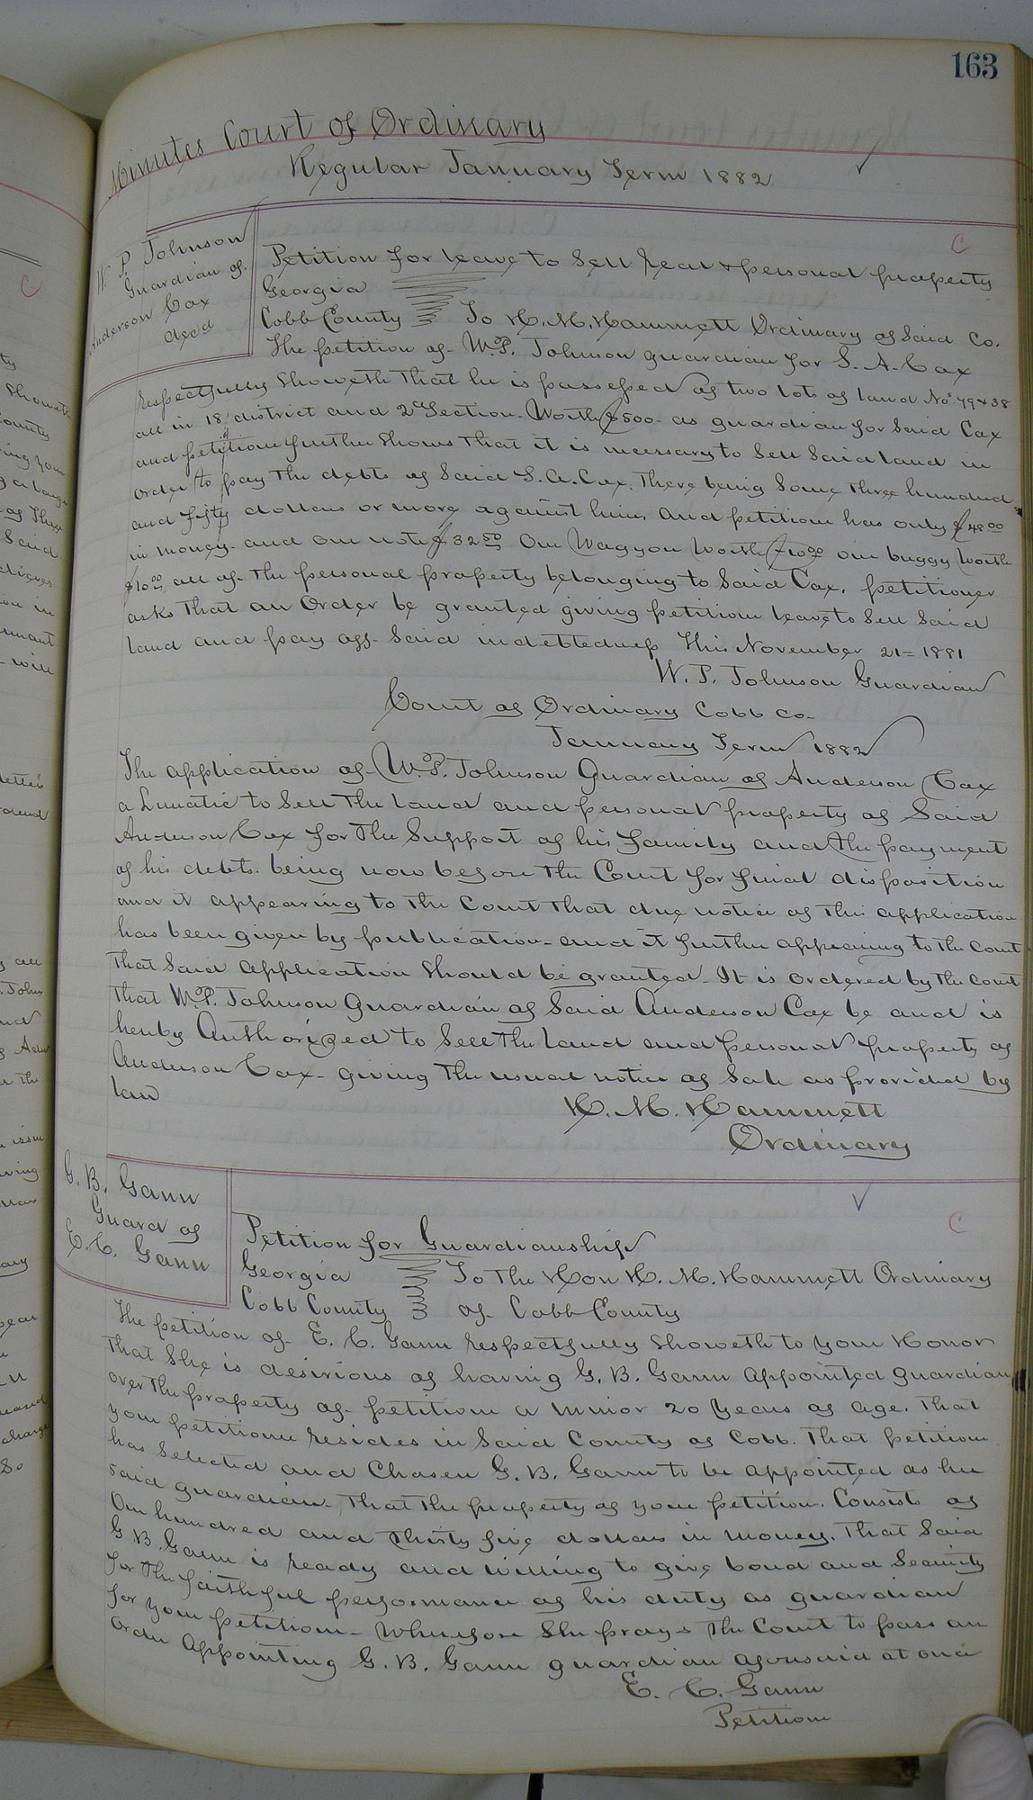 163
Minutes Court of Ordinary
Regular January Term 1882
W. P. Johnson
Guardian of
Anderson Cax
decd
C
Petition for leave to Sell Real & personal property
Georgia
Cobb County To H. M. Hammett Ordinary of Said Co.
The petition of Wm P. Johnson guardian for S. A. Cax
respectfully Showeth that he is possessed of two lots of land No 79 & 38
all in 18 district and 2d Section. Worth $500 as guardian for Said Cax
and petitioner further Shows that it is necessary to Sell Said land in
order to pay the debts of Said S. A. Cax. There being Some three hundred
and fifty dollars or more against him, and petitioner has only $48 00
in money. and one note $32 50 One Waggon Worth $10 00 one buggy Worth
$10 00 all of the personal property belonging to Said Cax. petitioner
asks that an Order be granted giving petitioner leave to Sell Said
land and pay off Said indebtedness This November 21= 1881
W. P. Johnson Guardian
Court of Ordinary Cobb Co.
January Term 1882
The application of Wm P. Johnson Guardian of Anderson Cax
a Lunatic to Sell the land and personal property of Said
Anderson Cax for the Support of his family and the payment
of his debts. being now before the Court for final disposition
and it appearing to the Court that due notice of this application
has been given by publication and it further appearing to the Court
that Said application Should be granted. It is ordered by the Court
that Wm P. Johnson Guardian of Said Anderson Cax be and is
hereby Authorized to Sell the land and personal property of
Anderson Cax giving the usual notice of Sale as provided by
law
H. M. Hammett
Ordinary
G. B. Gann
Guard of
E. C. Gann
C
Petition for Guardianship
Georgia To The Hon H. M. Hammett Ordinary
Cobb County of Cobb County
The petition of E. C. Gann respectfully Showeth to your Honor
that She is desirious of having G. B. Gann appointed guardian
over the property of petitioner a minor 20 years of age. That
your petitioner resides in Said County of Cobb. That petitioner
has Selected and Chosen G. B. Gann to be appointed as her
said guardian. That the property of your petitioner. Consists of
One hundred and thirty five dollars in money. That Said
G. B. Gann is ready and willing to give bond and Security
for the faithful performance of his duty as guardian
for your petitioner. Wherefore She prays the Court to pass an
Order appointing G. B. Gann guardian aforesaid at once
E. C. Gann
Petitioner